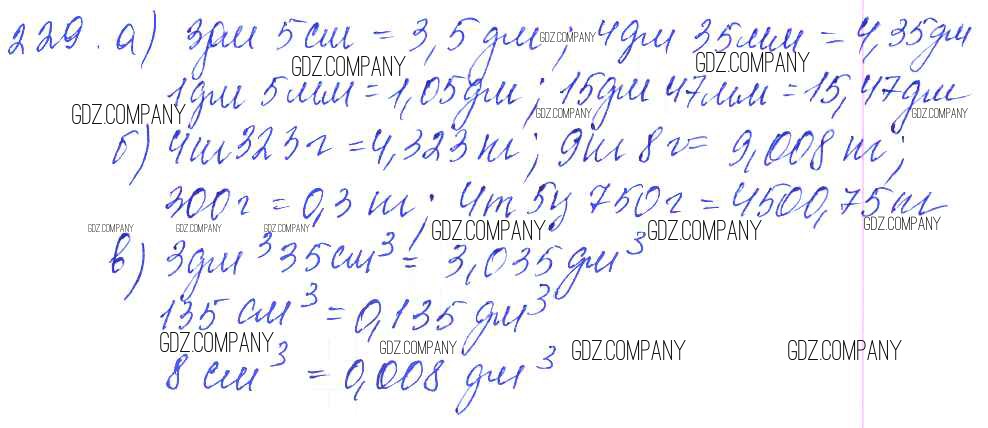 229. а) 3дм 5см = 3,5 дм; 4дм 35мм = 4,35дм
GDZ.COMPANY GDZ.COMPANY GDZ.COMPANY
1дм 5мм = 1,05дм; 15дм 47мм = 15,47дм
GDZ.COMPANY GDZ.COMPANY GDZ.COMPANY
б) 4кг 323г = 4,323 кг; 9кг 8г = 9,008 кг;
300г = 0,3 кг; 4т 5ц 750г = 4500,75кг
GDZ.COMPANY GDZ.COMPANY GDZ.COMPANY GDZ.COMPANY GDZ.COMPANY GDZ.COMPANY
в) 3дм³ 35см³ = 3,035 дм³
135 см³ = 0,135 дм³
GDZ.COMPANY GDZ.COMPANY GDZ.COMPANY GDZ.COMPANY
8 см³ = 0,008 дм³